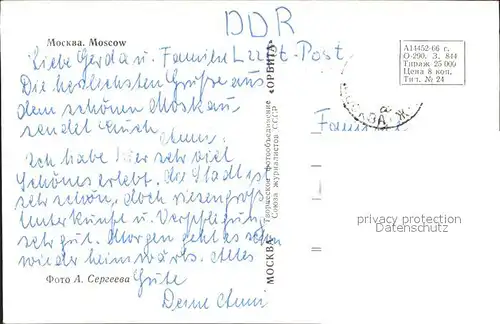 DDR
Москва. Moscow
Luft-Post
Liebe Gerda u. Familie
Die herzlichsten Grüße aus
dem schönen Moskau,
sendet Euch
Ich habe hier sehr viel
Schönes erlebt. die Stadt ist
sehr schön, doch riesengroß
Unterkunft u. Verpflegung
sehr gut. Morgen geht es schon
wieder heimwärts. Alles
Gute
Deine
Фото А. Сергеева
МОСКВА Творческое фотообъединение «ОРБИТА»
Союза журналистов СССР
А14452-66 г.
О-290. З. 844
Тираж 25 000
Цена 8 коп.
Тип. № 24
privacy protection
oldthing.de